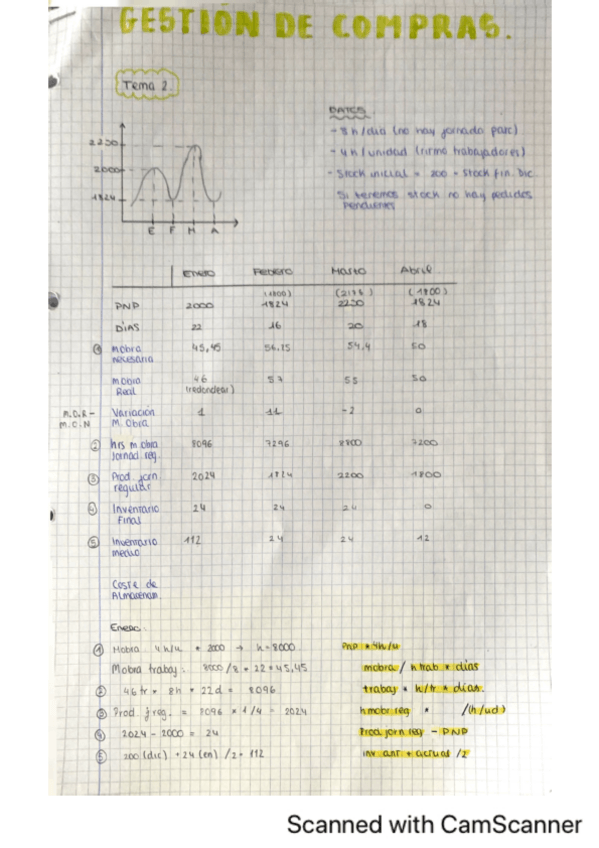 GESTIÓN DE COMPRAS.
Tema 2
DATOS
- 8h/dia (no hay jornada parc)
- 4h/unidad (ritmo trabajadores)
- Stock inicial = 200 = stock fin. Dic.
Si tenemos stock no hay pedidos
pendientes
2230
2000
1824
E F M A
Enero Febrero Marzo Abril
(1800) (2176) (1800)
PNP 2000 1824 2200 1824
DIAS 22 16 20 18
① mobra necesaria 45,45 56,25 54,4 50
mobra Real 46 (redondear) 57 55 50
M.O.R - M.O.N Variación M. Obra 1 11 -2 0
② hrs m obra jornad reg. 8096 7296 8800 7200
③ Prod jorn regular 2024 1824 2200 1800
④ Inventario Final 24 24 24 0
⑤ Inventario medio 112 24 24 12
Coste de Almacenam.
Enero:
① Mobra 4h/u * 2000 → h = 8000 PNP * 4h/u
Mobra trabaj: 8000/8 * 22 = 45,45 mobra / h trab * dias
② 46 tr * 8h * 22d = 8096 trabaj * h/tr * dias.
③ Prod j reg. = 8096 * 1/4 = 2024 h mobr reg * /(h/ud)
④ 2024 - 2000 = 24 Prod jorn reg - PNP
⑤ 200 (dic) + 24 (en) /2 = 112 inv ant + actual /2
Scanned with CamScanner